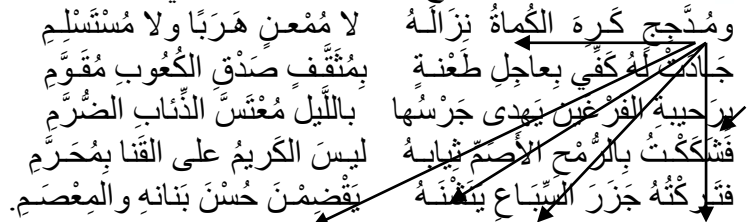 ومُدَّجِجٍ كَرِهَ الكُماةُ نِزَالَهُ لا مُمْعنٍ هَرَبًا ولا مُسْتَسْلِمِ
جَادَتْ لَهُ كَفِّي بِعاجِلِ طَعْنةٍ بِمُثَقَّفٍ صَدْقِ الكُعُوبِ مُقَوَّمِ
بِرَحيبةِ الفَرْغَينِ يَهدى جَرْسُها باللَّيل مُعْتَسَّ الذِّئابِ الضُّرَّمِ
فَشَكَكْتُ بِالرُّمْحِ الأَصَمِّ ثِيابهُ ليسَ الكَريمُ على القَنا بِمُحَرَّمِ
فتَركْتُهُ جَزَرَ السِّبَاعِ يَنُشْنَهُ يَقْضِمْنَ حُسْنَ بَنانهِ والمِعْصَمِ.